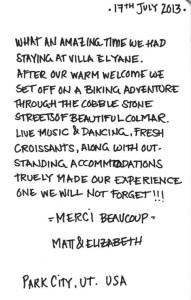 · 17TH JULY 2013 ·
WHAT AN AMAZING TIME WE HAD
STAYING AT VILLA ELYANE.
AFTER OUR WARM WELCOME WE
SET OFF ON A BIKING ADVENTURE
THROUGH THE COBBLE STONE
STREETS OF BEAUTIFUL COLMAR.
LIVE MUSIC & DANCING, FRESH
CROISSANTS, ALONG WITH OUT-
STANDING ACCOMMODATIONS
TRUELY MADE OUR EXPERIENCE
ONE WE WILL NOT FORGET!!!
- MERCI BEAUCOUP -
MATT & ELIZABETH
PARK CITY, UT. USA